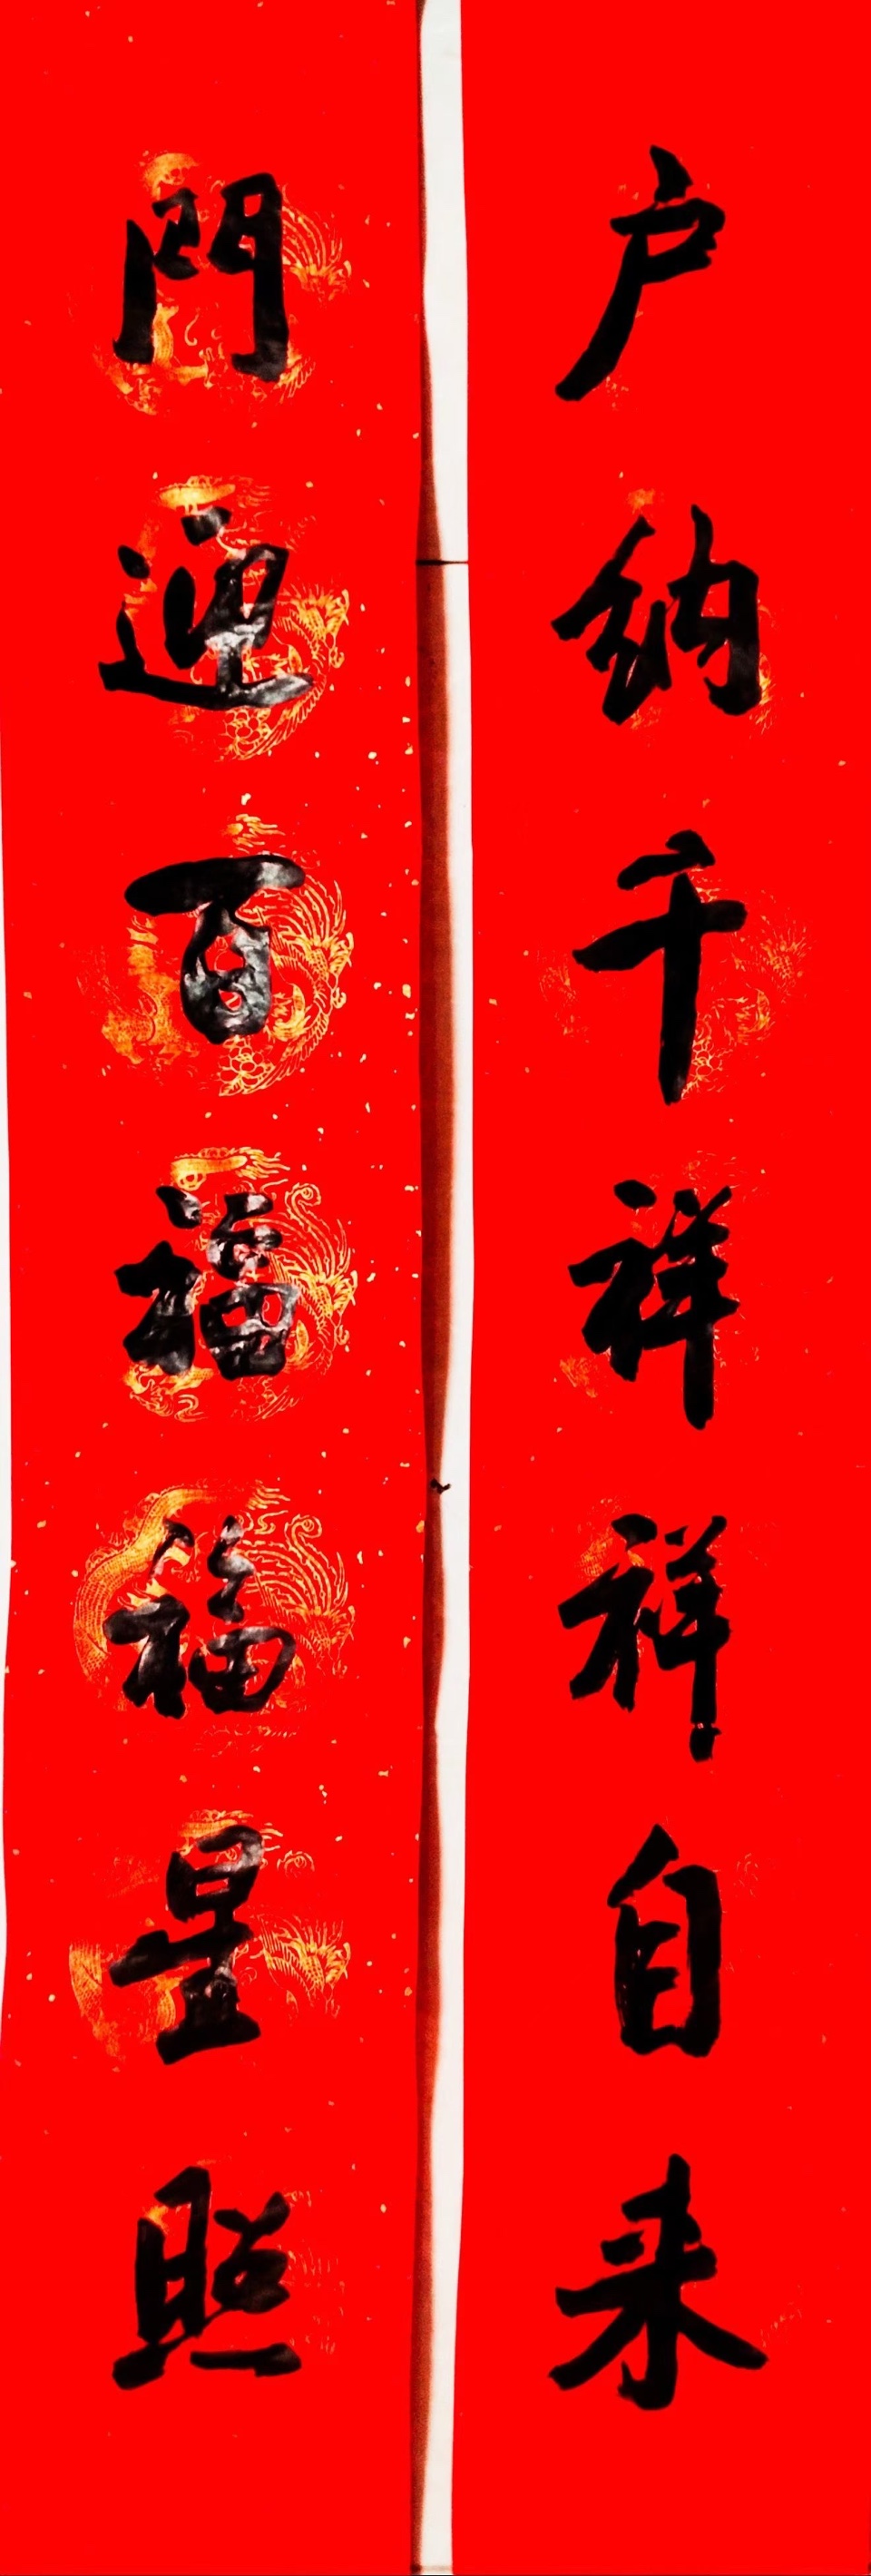 户纳千祥祥自来
門迎百福福星照